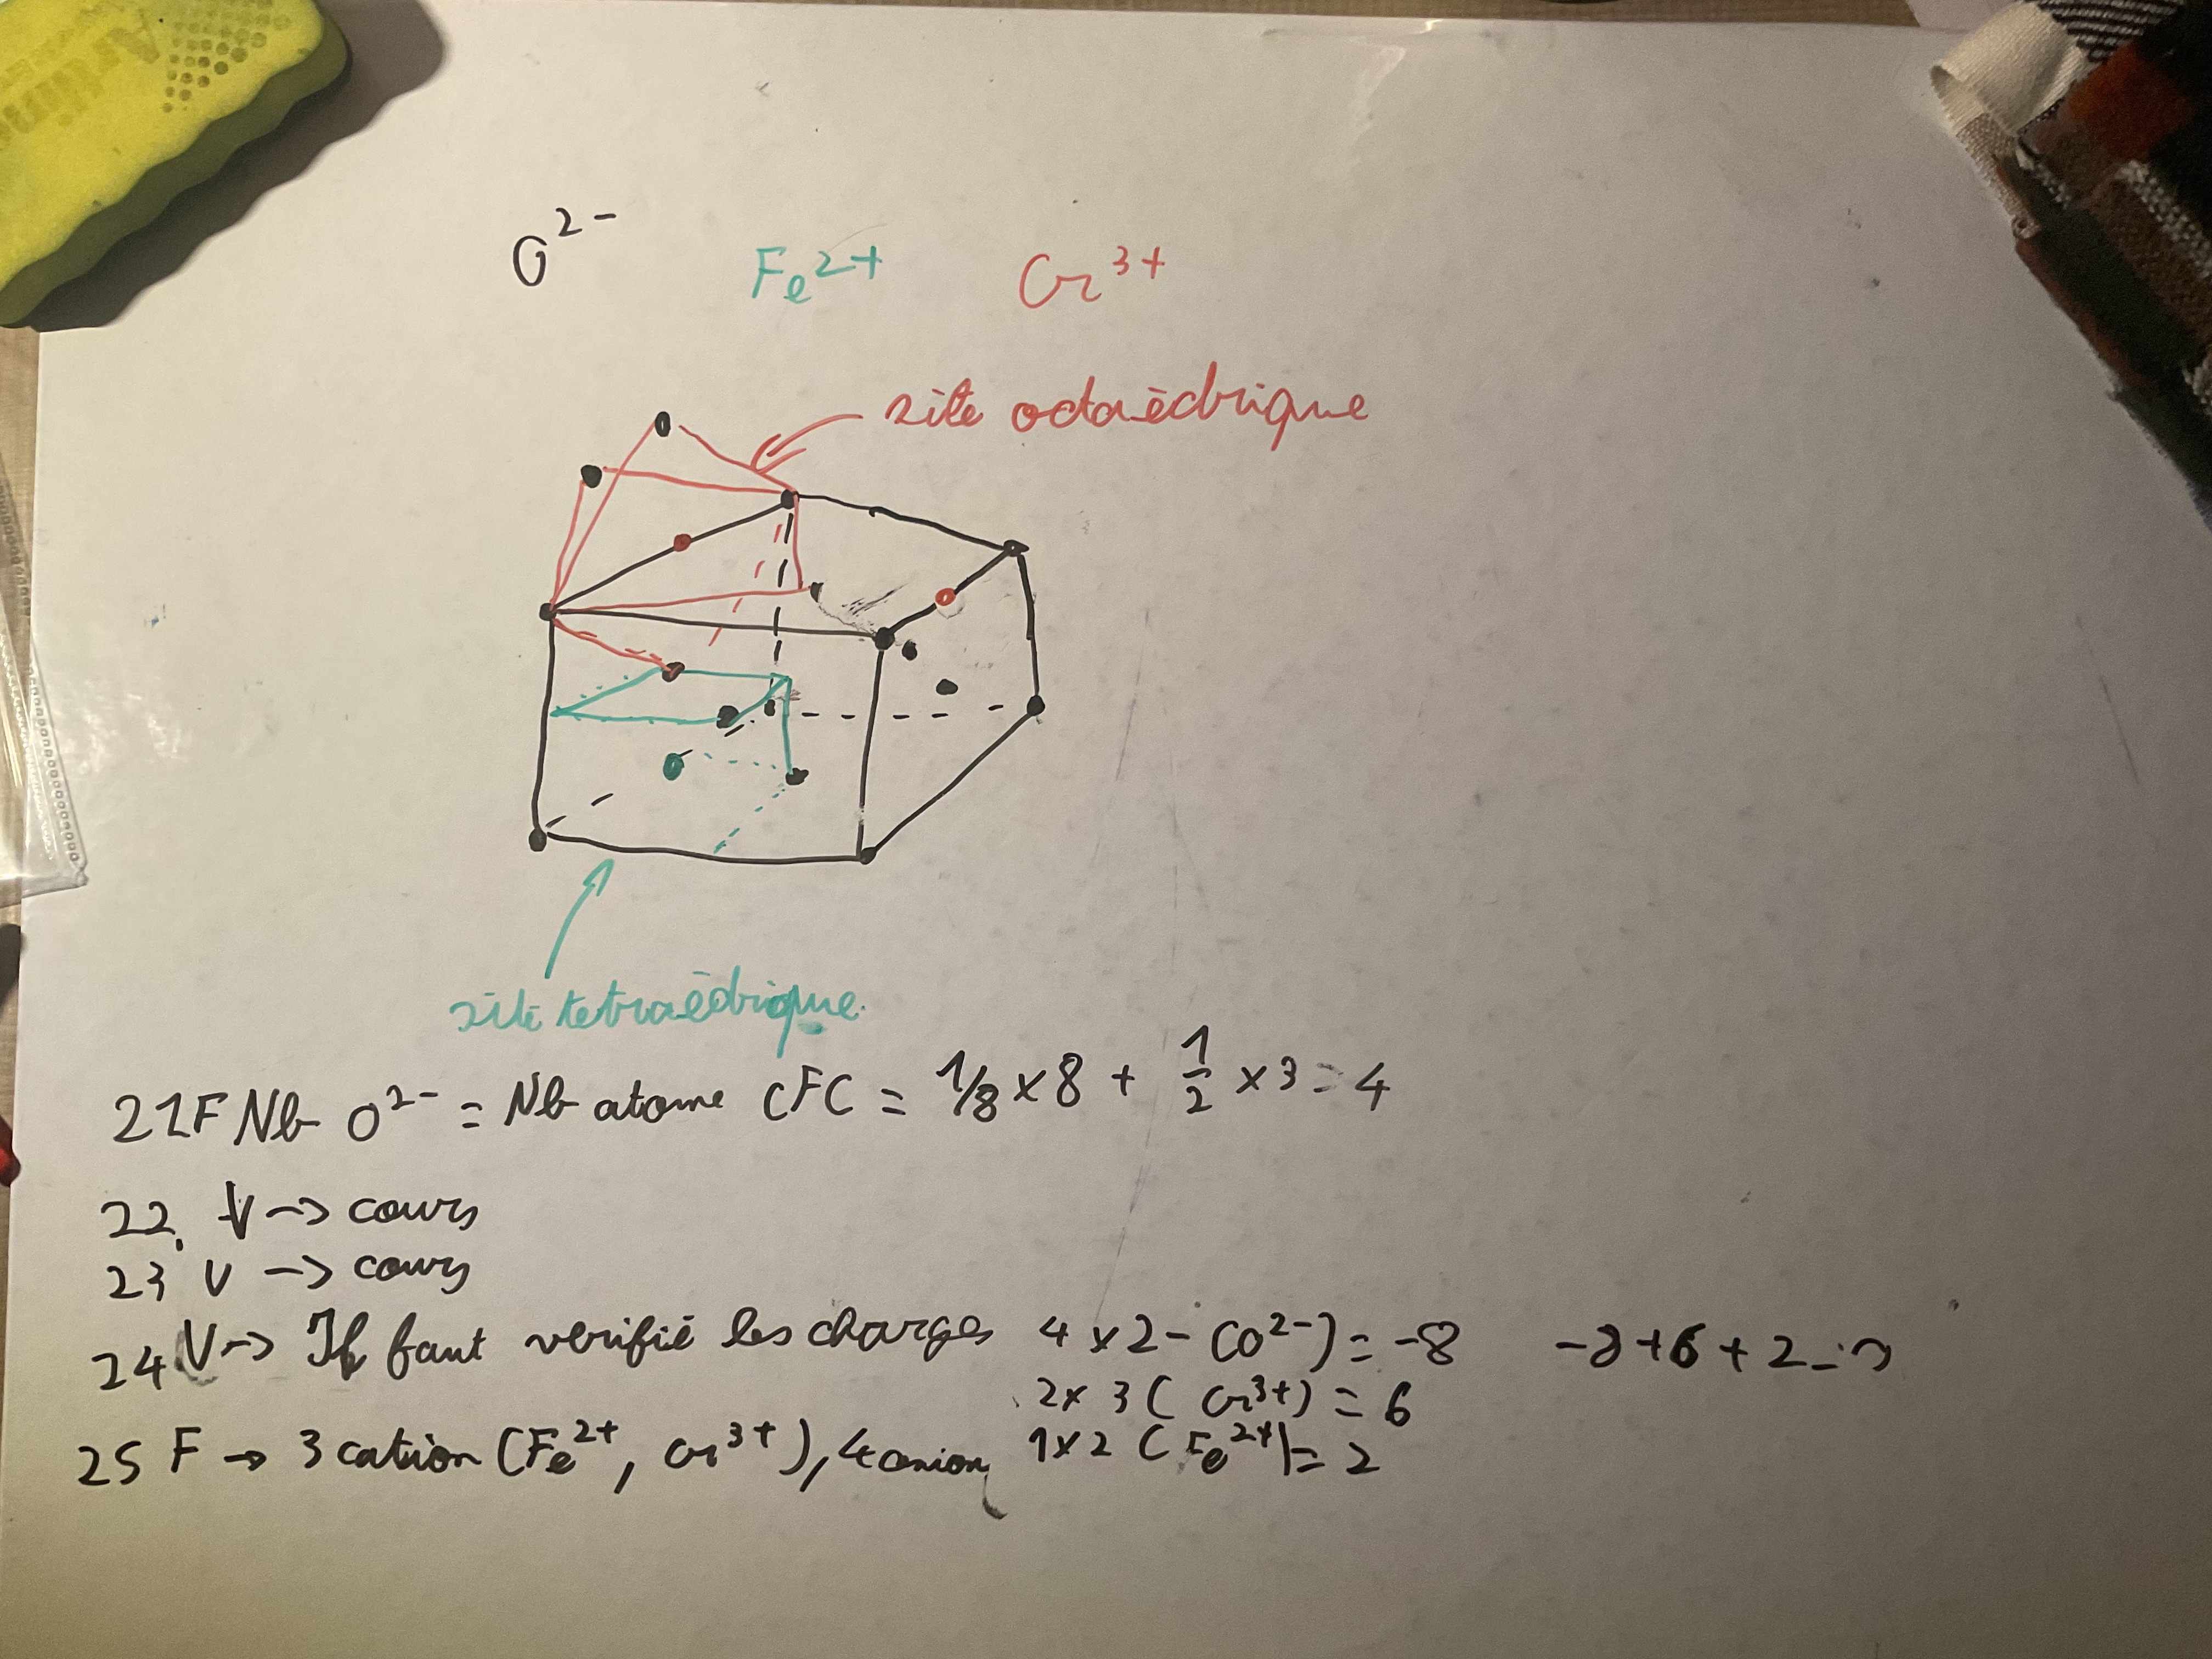 O²⁻ Fe²⁺ Cr³⁺
site octaèdrique
site tetraédrique.
21F Nb O²⁻ = Nb atome CFC = 1/8 x 8 + 1/2 x 3 = 4
22. V -> cours
23 V -> cours
24 V -> Il faut vérifié les charges 4 x 2- (O²⁻) = -8 -8+6+2=0
2x 3 ( Cr³⁺) = 6
25 F -> 3 cation (Fe²⁺, Cr³⁺), 4 anion 1x2 (Fe²⁺) = 2